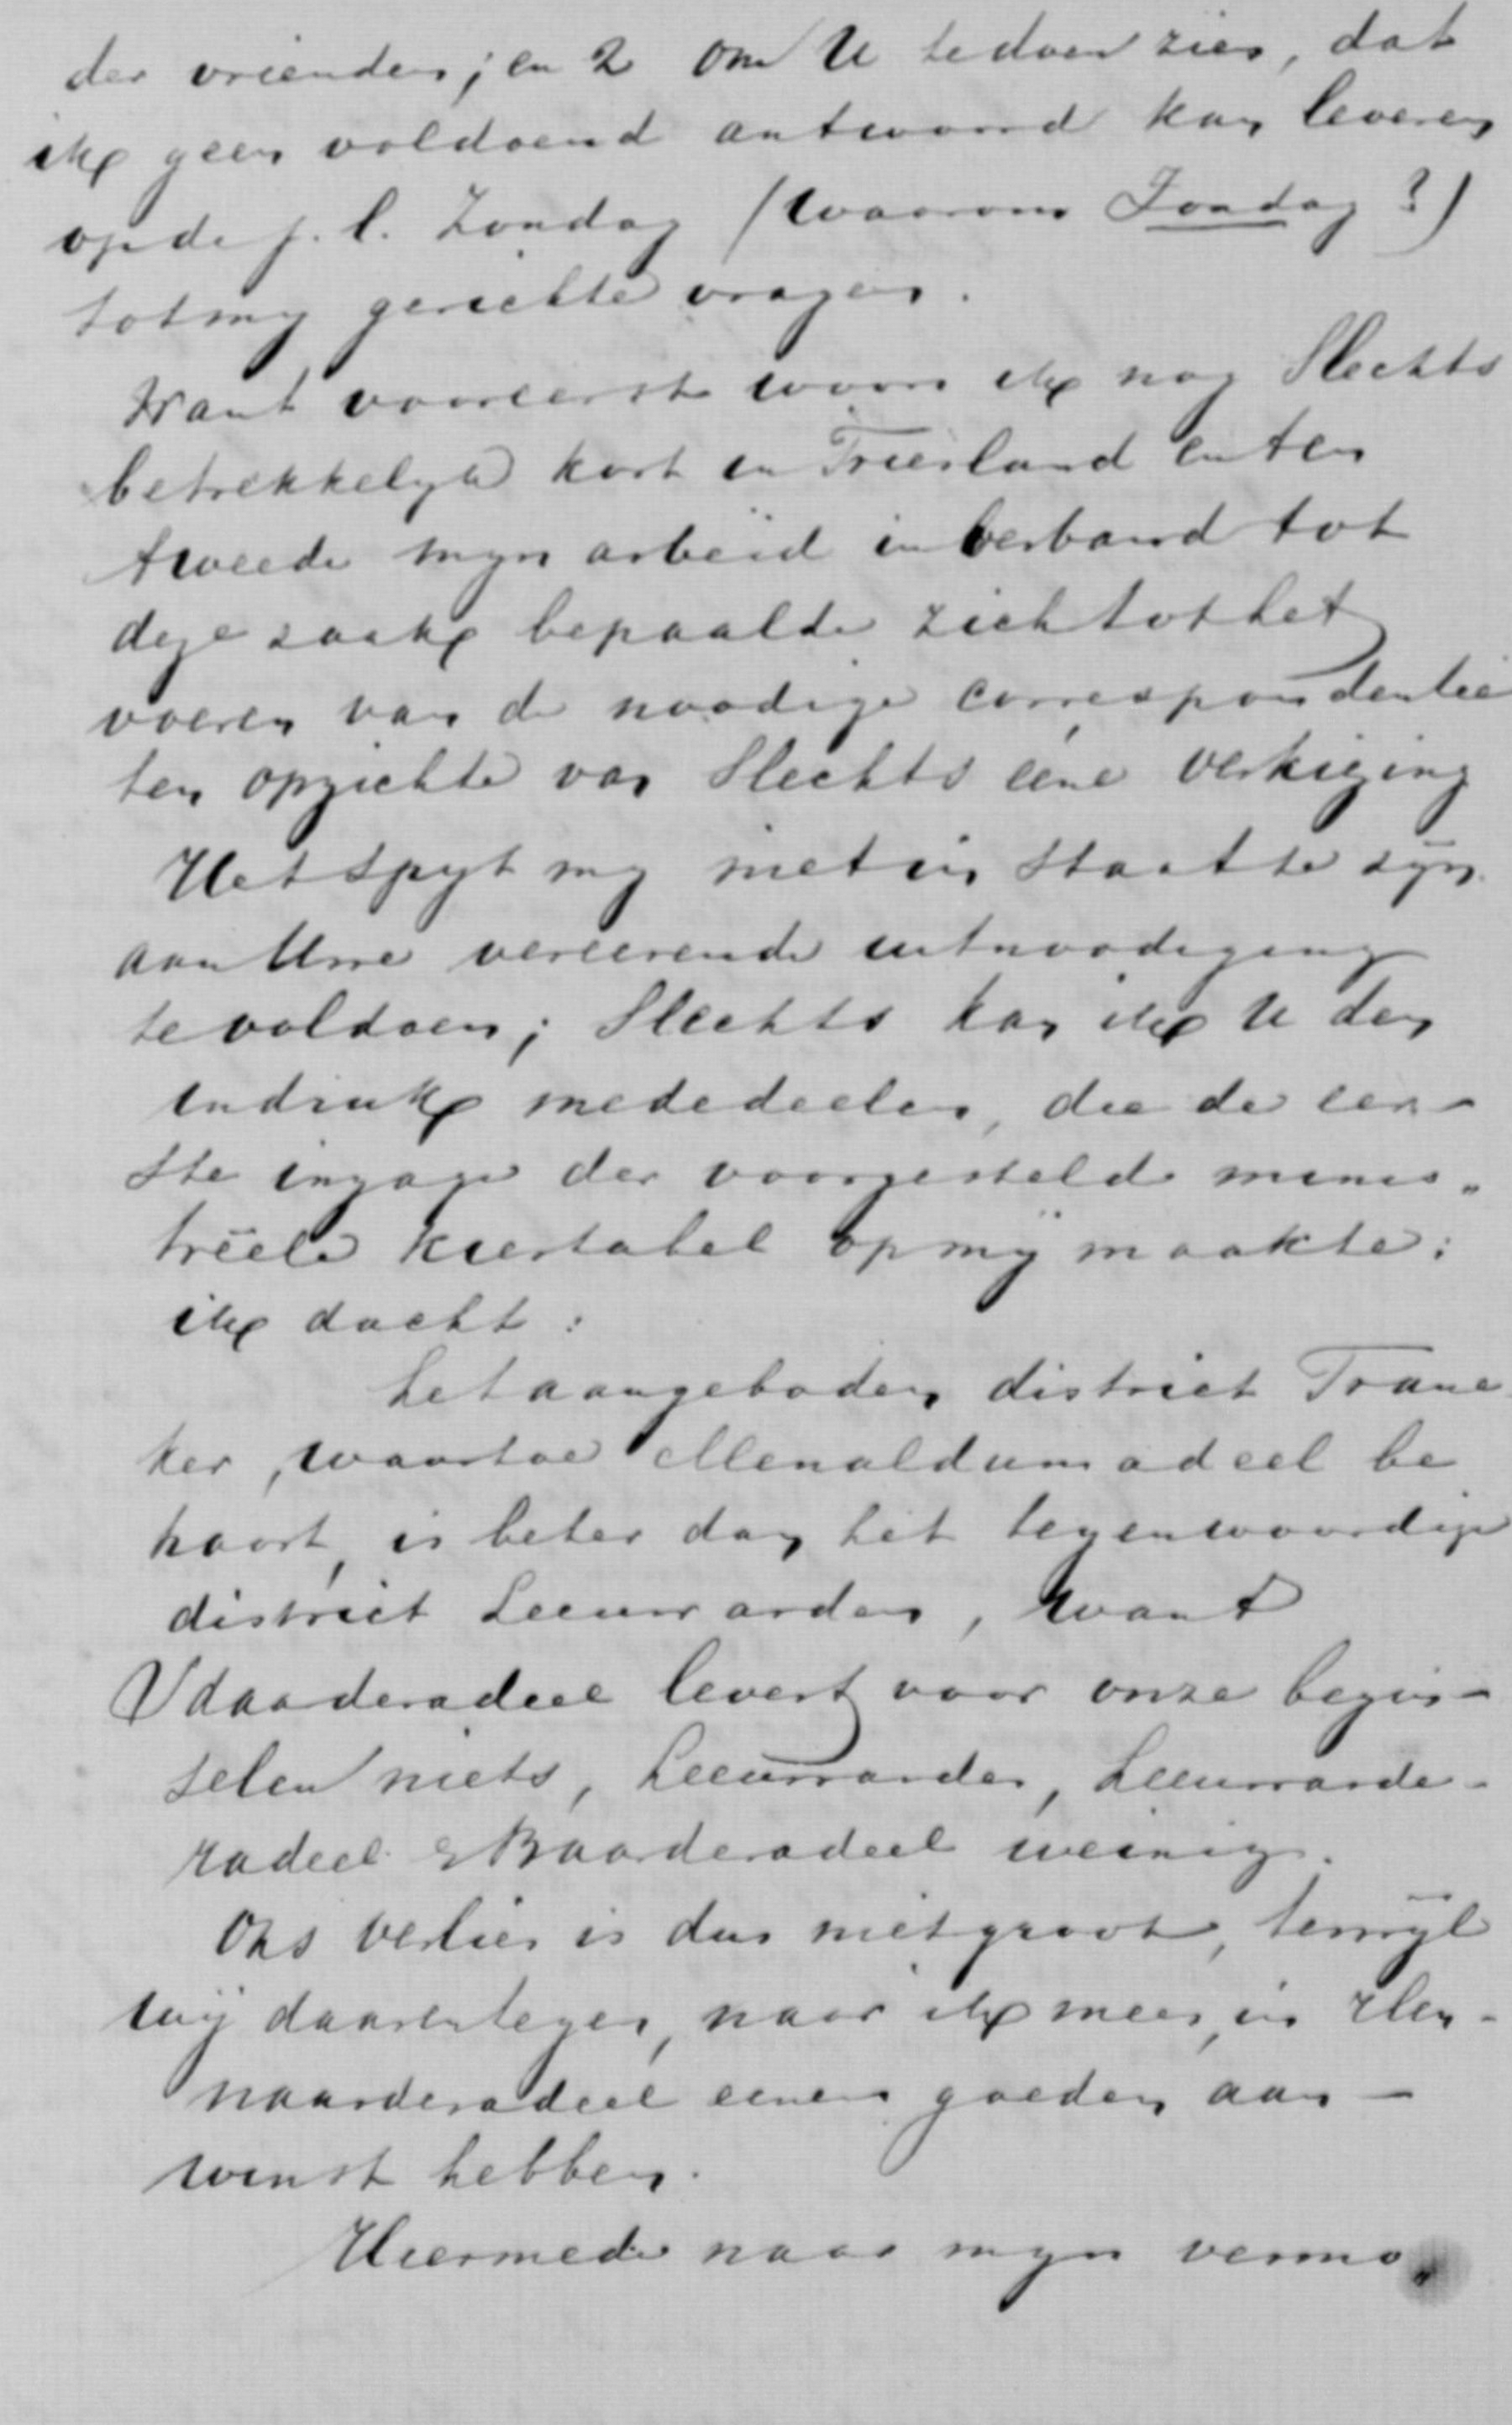 der vrienden; en 2 om U te doen zien, dat
ik geen voldoend antwoord kan leveren
op de j.l. Zondag (waarom Zondag?)
tot my gerichte vragen.
Want vooreerst woon ik nog slechts
betrekkelyk kort in Friesland en ten
tweede myn arbeid in verband tot
deze zaak bepaalde zich tot het
voeren van de noodige correspondentie
ten opzichte van slechts eene verkiezing
Het spyt my niet in staat te zyn
aan Uwe vereerende uitnoodiging
te voldoen; slechts kan ik U den
indruk mededeelen, die de eer-
ste inzage der voorgestelde minis-
trieele kiestabel op my maakte:
ik dacht:
het aangeboden district Frane
ker, waartoe Menaldumadeel be
hoort, is beter dan het tegenwoordige
district Leeuwarden, want
Idaarderadeel levert voor onze begin-
selen niets, Leeuwarden, Leeuwarde-
radeel & Baarderadeel weinig.
Ons verlies is dus niet groot, terwyl
wy daarentegen, naar ik meen, in Hen-
naarderadeel eenen goeden aan-
winst hebben.
Hiermede naar myn vermo-